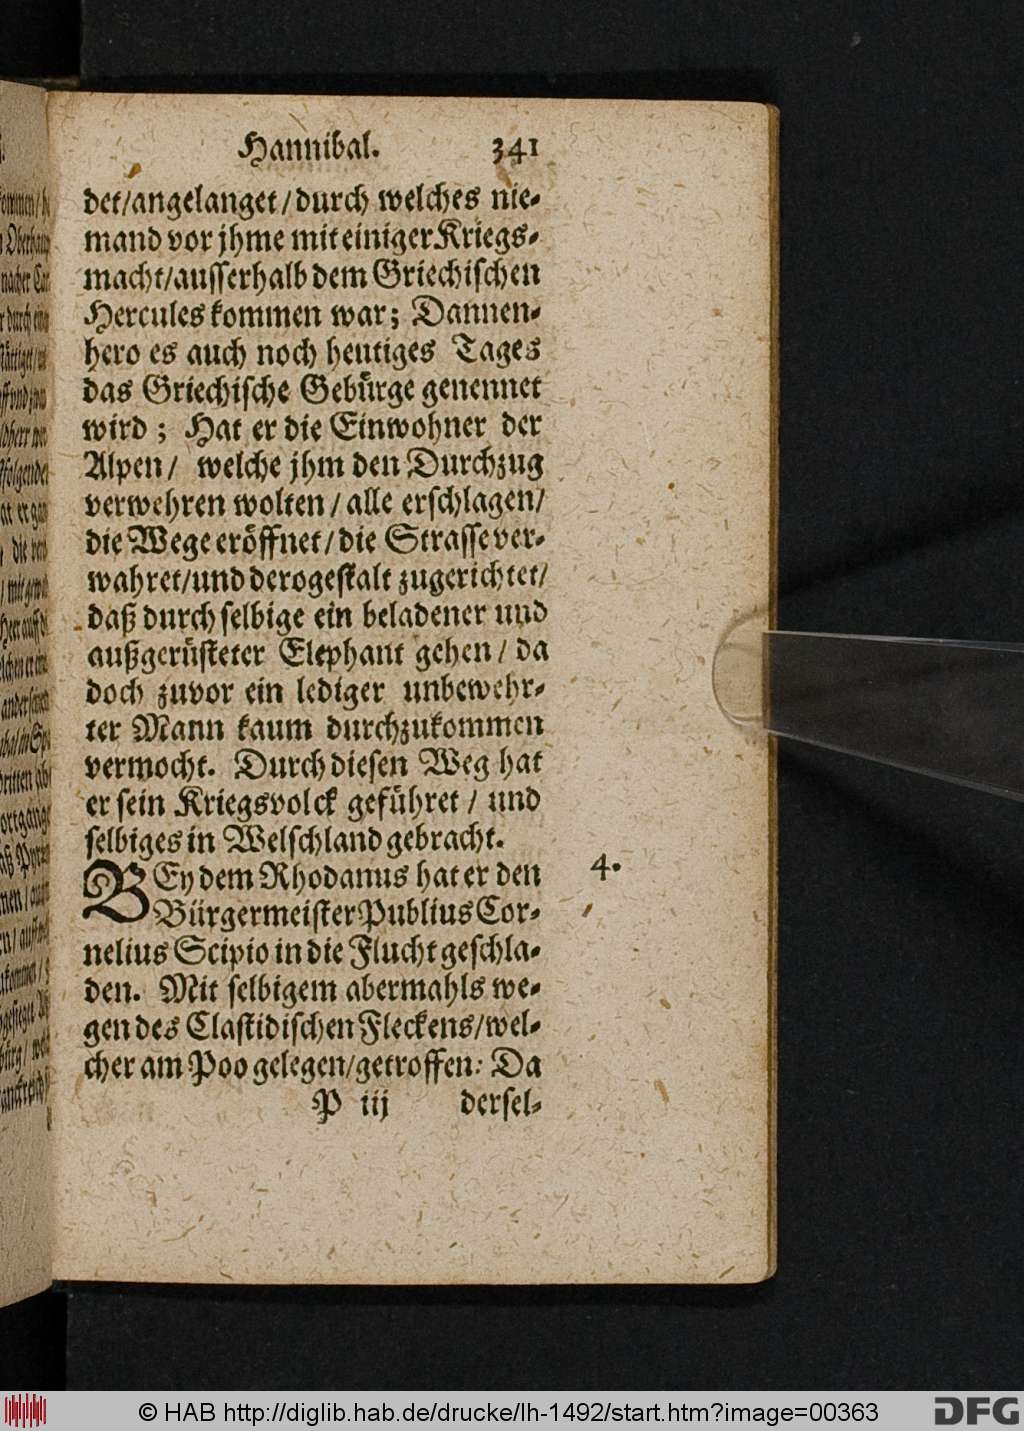 Hannibal. 341
det/angelanget/durch welches nie-
mand vor jhme mit einiger Kriegs-
macht/ausserhalb dem Griechischen
Hercules kommen war; Dannen-
hero es auch noch heutiges Tages
das Griechische Gebürge genennet
wird; Hat er die Einwohner der
Alpen/ welche jhm den Durchzug
verwehren wolten/alle erschlagen/
die Wege eröffnet/die Strasse ver-
wahret/und derogestalt zugerichtet/
daß durch selbige ein beladener und
außgerüsteter Elephant gehen/da
doch zuvor ein lediger unbewehr-
ter Mann kaum durchzukommen
vermocht. Durch diesen Weg hat
er sein Kriegsvolck geführet/und
selbiges in Welschland gebracht.
BEy dem Rhodanus hat er den 4.
Bürgermeister Publius Cor-
nelius Scipio in die Flucht geschla-
den. Mit selbigem abermahls we-
gen des Clastidischen Fleckens/wel-
cher am Poo gelegen/getroffen: Da
P iij dersel-
© HAB http://diglib.hab.de/drucke/lh-1492/start.htm?image=00363
DFG